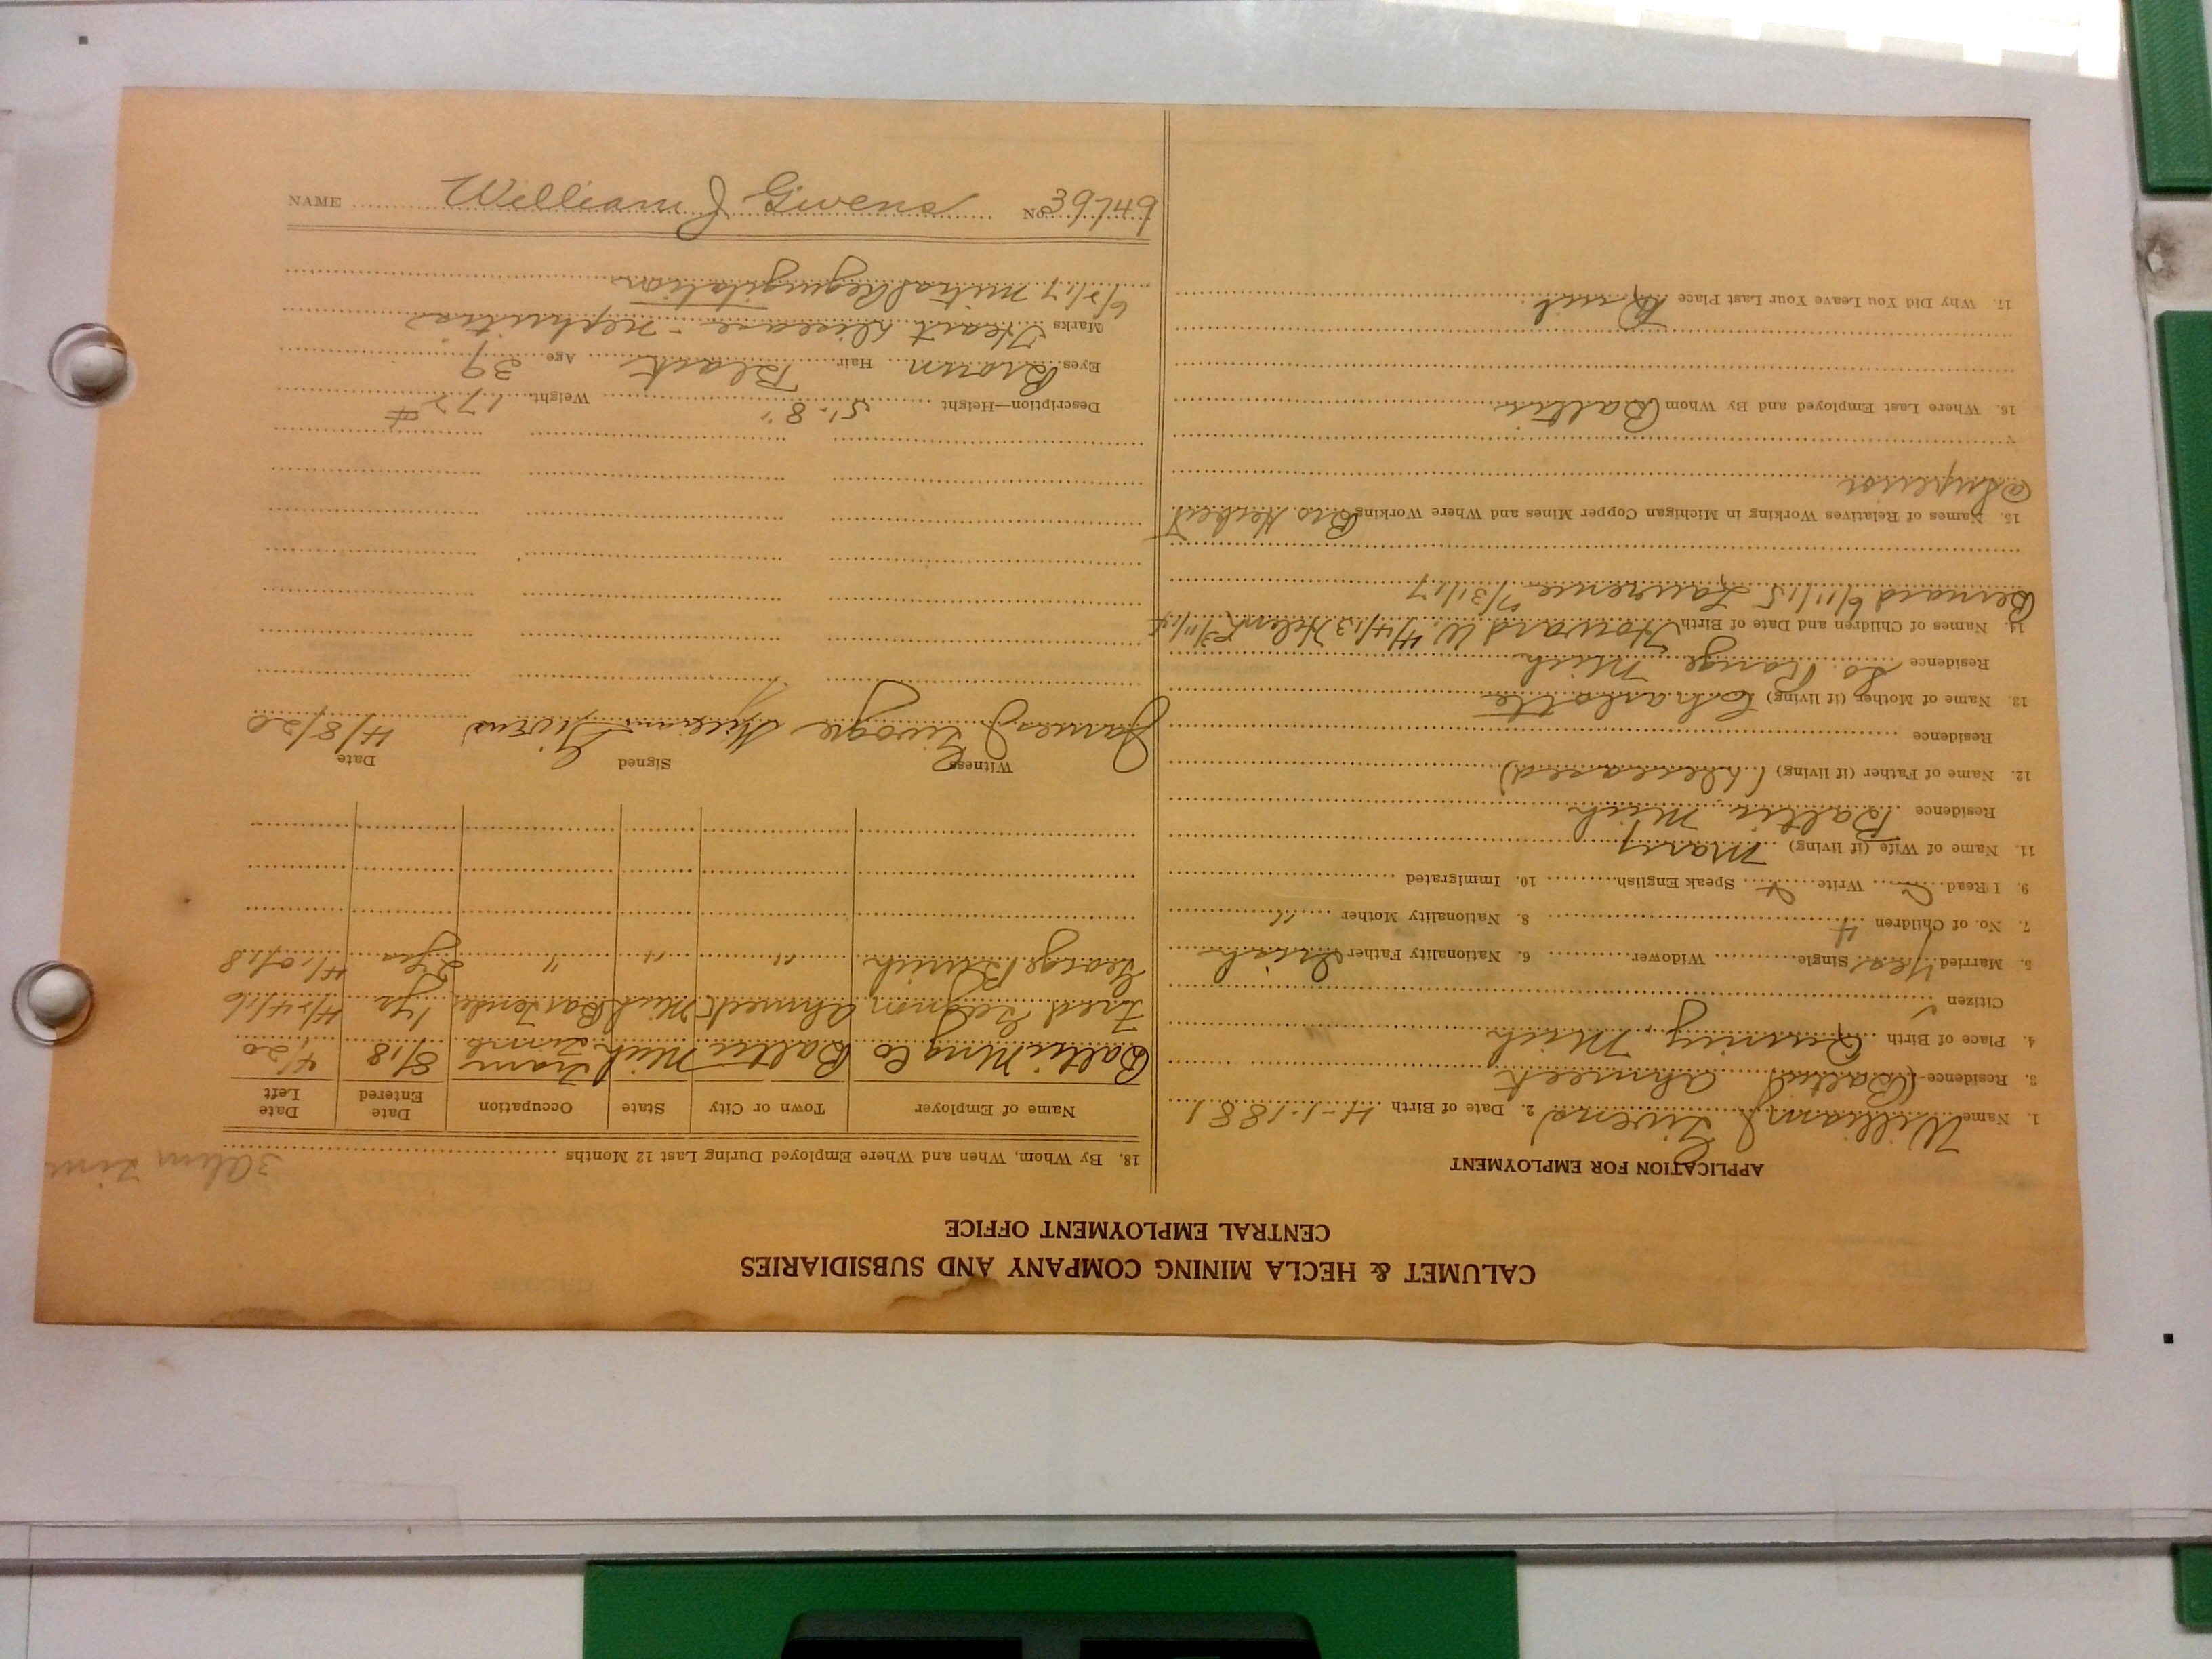 CALUMET & HECLA MINING COMPANY AND SUBSIDIARIES
CENTRAL EMPLOYMENT OFFICE
APPLICATION FOR EMPLOYMENT
1. Name William J Givens 2. Date of Birth 4-1-1881
3. Residence (Baltic) Ahmeek
4. Place of Birth Quincy, Mich
Citizen
5. Married Yes Single Widower 6. Nationality Father Irish
7. No. of Children 4 8. Nationality Mother "
9. I Read Write Speak English 10. Immigrated
11. Name of Wife (if living) Mary
Residence Baltic Mich
12. Name of Father (if living) (deceased)
Residence
13. Name of Mother (if living) Charlotte
Residence So. Range Mich
14. Names of Children and Date of Birth Howard W. 4/4/12 Helen R 3/11/14
Bernard 6/11/15 Lawrence 7/31/17
15. Names of Relatives Working in Michigan Copper Mines and Where Working Bro Herbert
@ Superior
16. Where Last Employed and By Whom Baltic
17. Why Did You Leave Your Last Place Quit
3 Ahm
18. By Whom, When and Where Employed During Last 12 Months
Name of Employer Town or City State Occupation Date Entered Date Left
Baltic Mng Co Baltic Mich 8/18 4/20
Fred Gagnon Ahmeek Mich Bartender 1 yr 4/24/16
George " " " 2 yrs 4/10/18
Witness Signed Date
James J William Givens 4/8/20
Description—Height 5'-8" Weight 172#
Eyes Brown Hair Black Age 39
Marks Heart disease - nephritis
6/2/17 Mitral Regurgitation
NAME William J Givens No. 39749